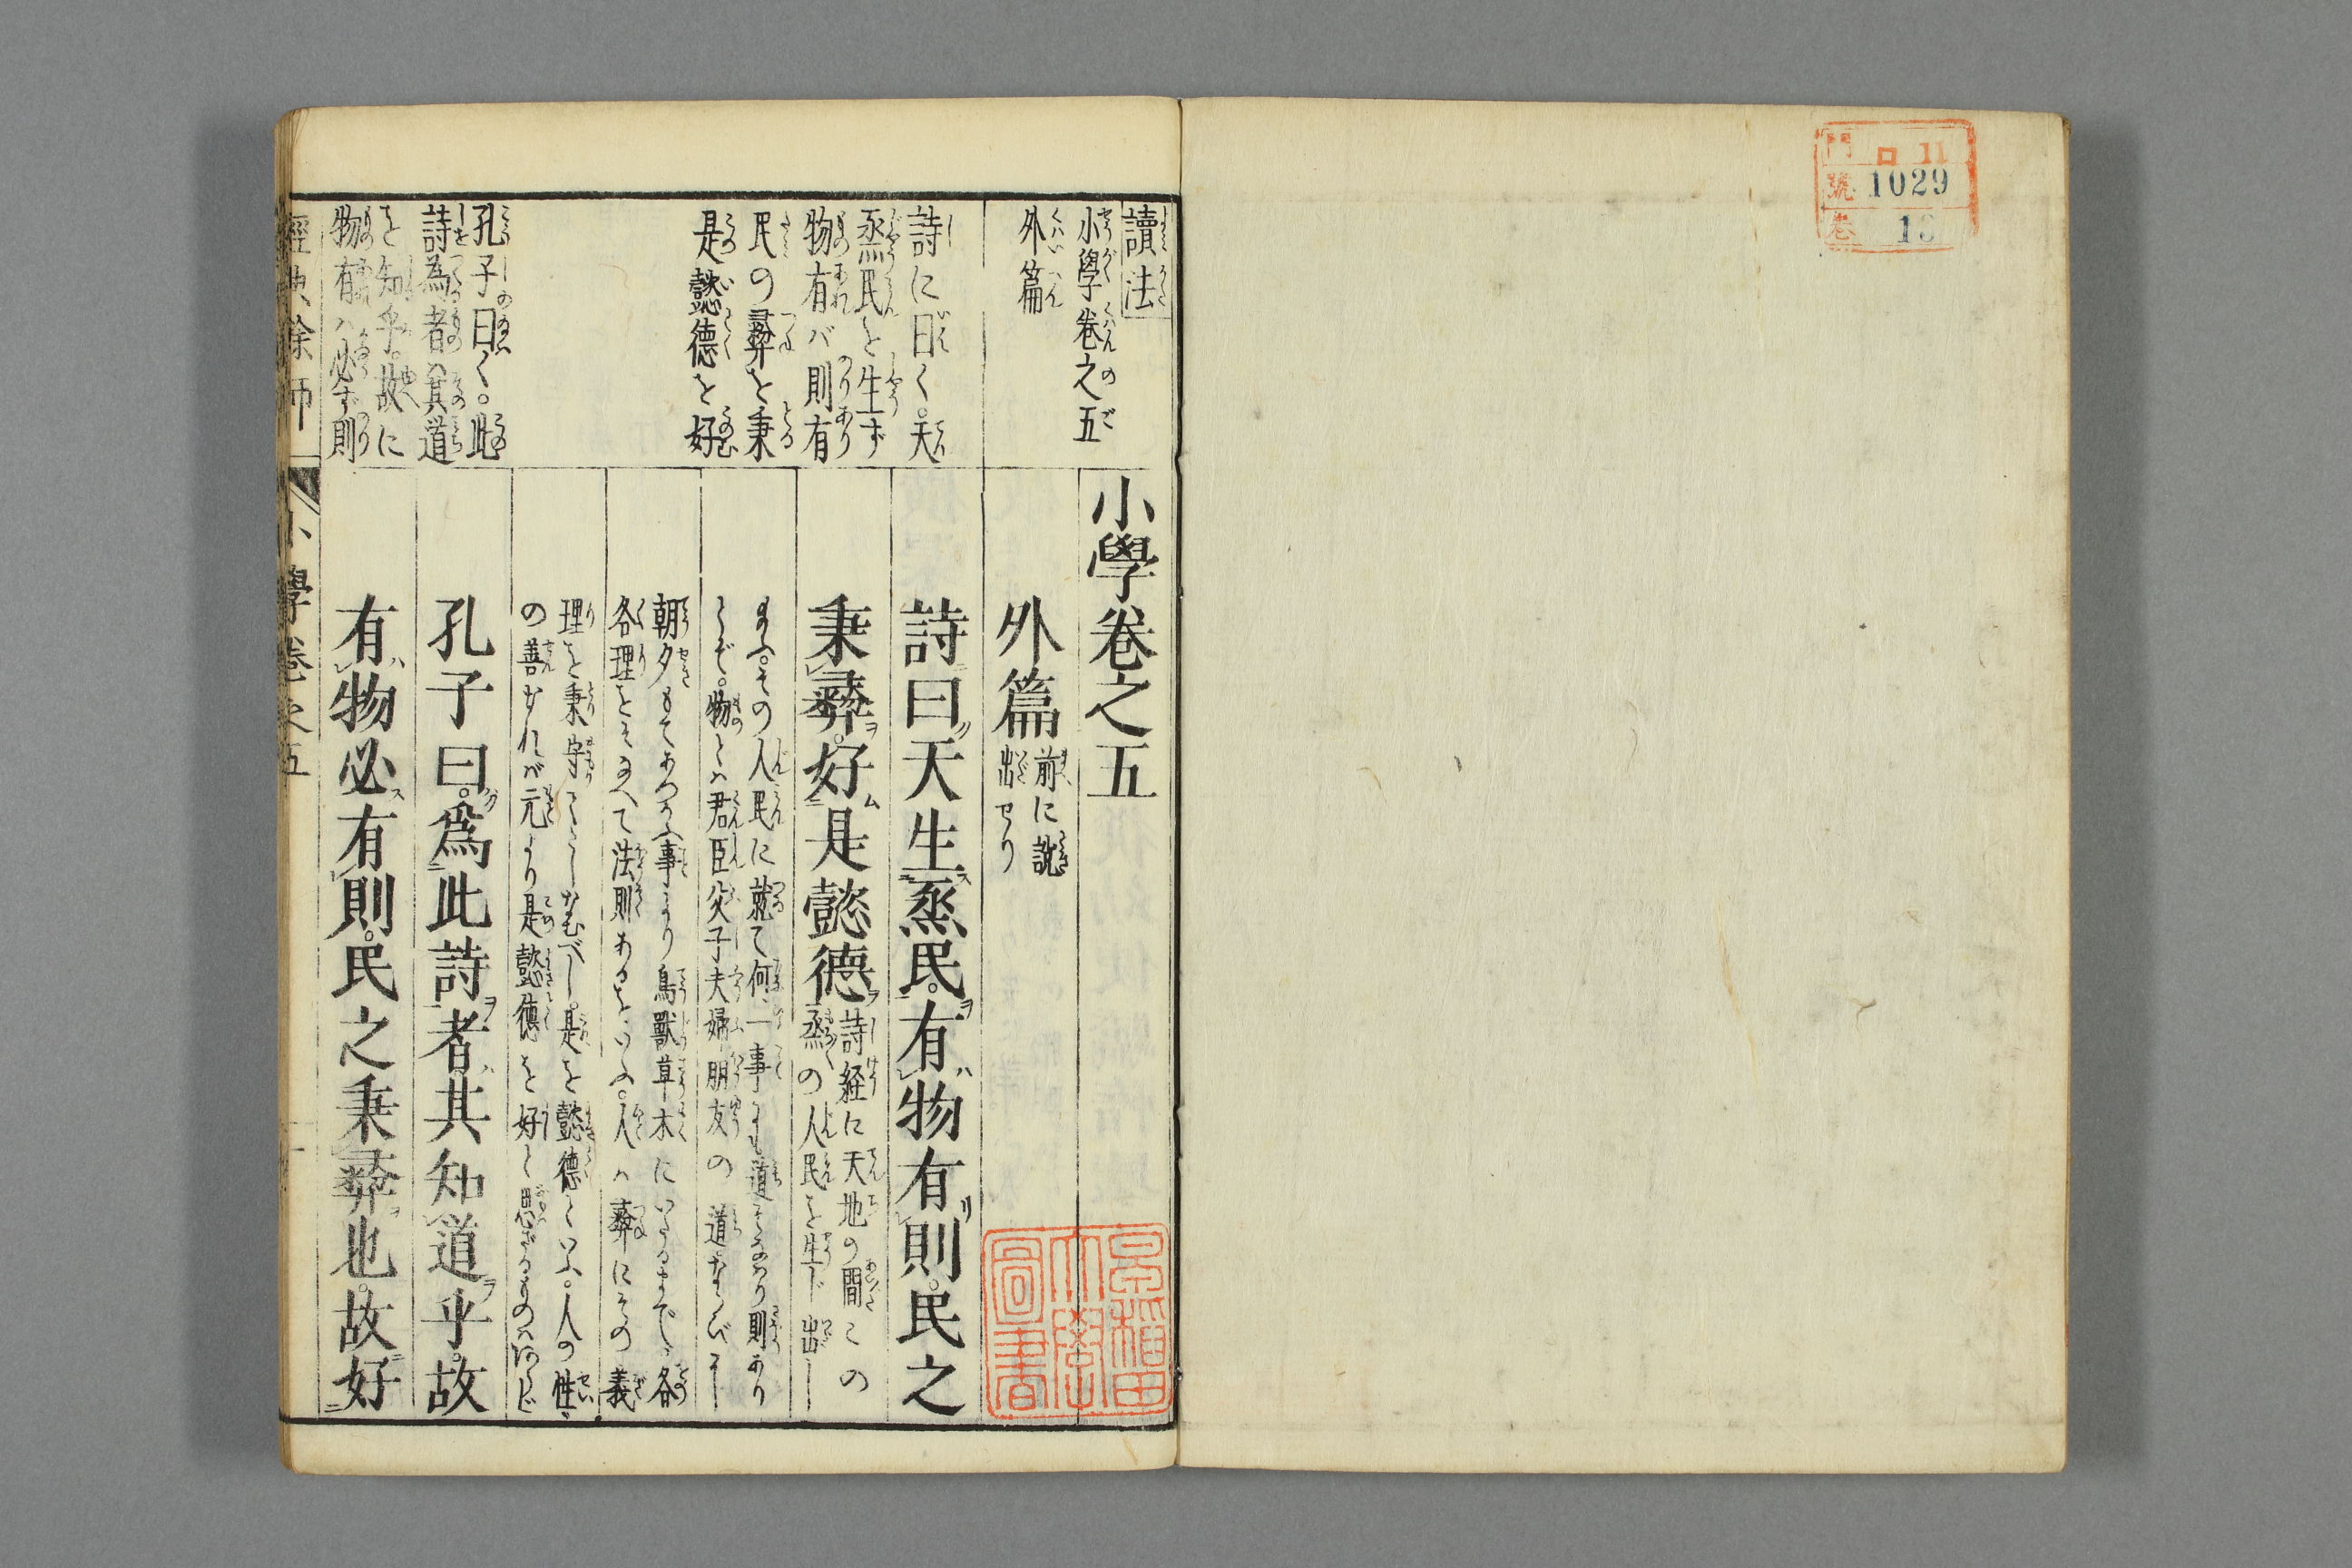 門 ロ 11
號 1029
卷 13
讀法
小學卷之五
外篇
詩に曰く。天
烝民を生ず
物有バ則有
民の彛を秉
是懿德を好
孔子曰く。此
詩為者ハ其道
を知乎。故に
物有ハ必ず則
小學卷之五
外篇
前に説
出せり
詩曰天生烝民。有物有則。民之
秉彛。好是懿德
詩経に天地の間この
烝の人民を生じ出し
その人民に就て何一事にも道そなはり則あり
とぞ。物とハ君臣父子夫婦朋友の道ならびに
朝夕もてあつかふ事より鳥獸草木にいたるまで各
各理をそなへて法則あるをいふ。人ハ彛にその義
理を秉守てたしなむべし。是を懿德といふ。人の性
の善なれバ元より是懿德を好と思ざるものハあらじ
孔子曰。爲此詩者其知道乎。故
有物必有則。民之秉彛也。故好
經典餘師
小學卷之五
一
早稲田
大學
圖書